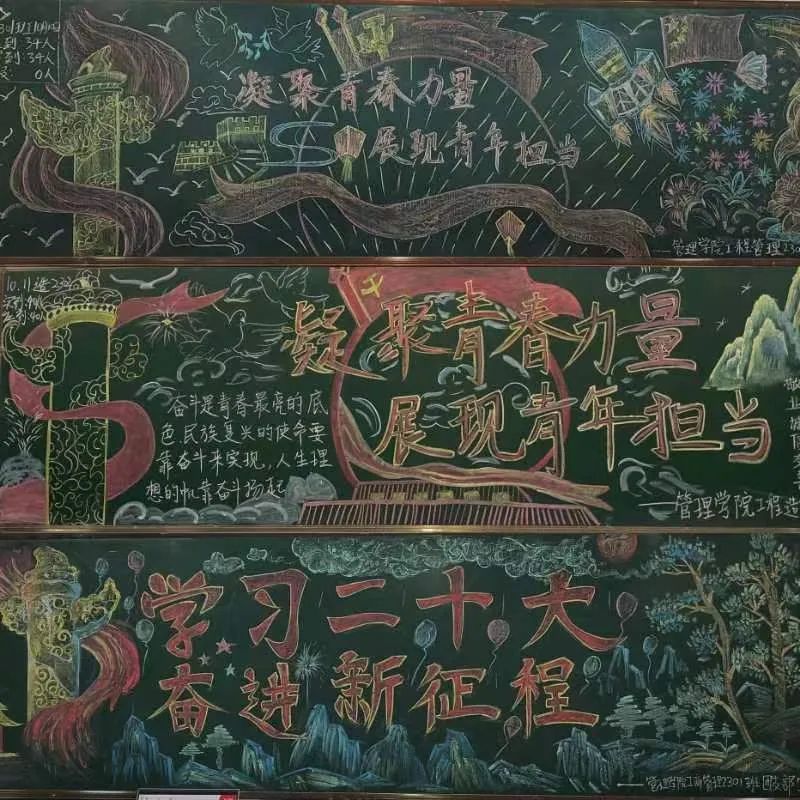 到 34人
到 34人
0人
凝聚青春力量
展现青年担当
管理学院工程管理230
凝聚青春力量
展现青年担当
奋斗是青春最亮的底
色民族复兴的使命要
靠奋斗来实现,人生理
想的帆靠奋斗扬起
——管理学院工程造
学习二十大
奋进新征程
——管理学院工商管理2301班团支部